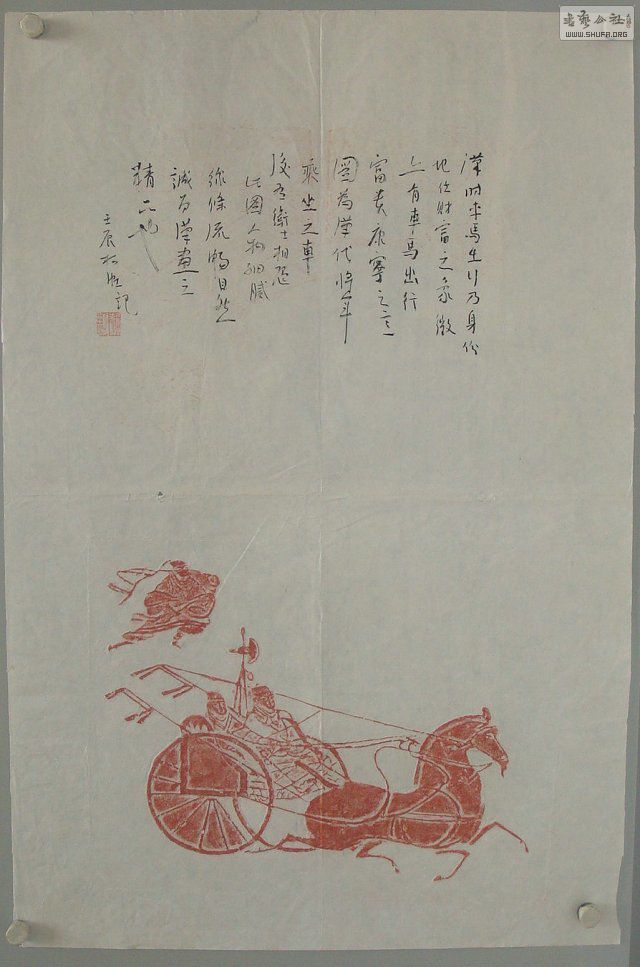 漢时车馬出行乃身份
地位财富之象徵
上有車馬出行
富贵康寧之意
圖為漢代將军
乘坐之車
後有衛士相
此圖人物细腻
線條流暢自然
誠為漢畫之
精品也
壬辰松记
书艺公社
WWW.SHUFA.ORG